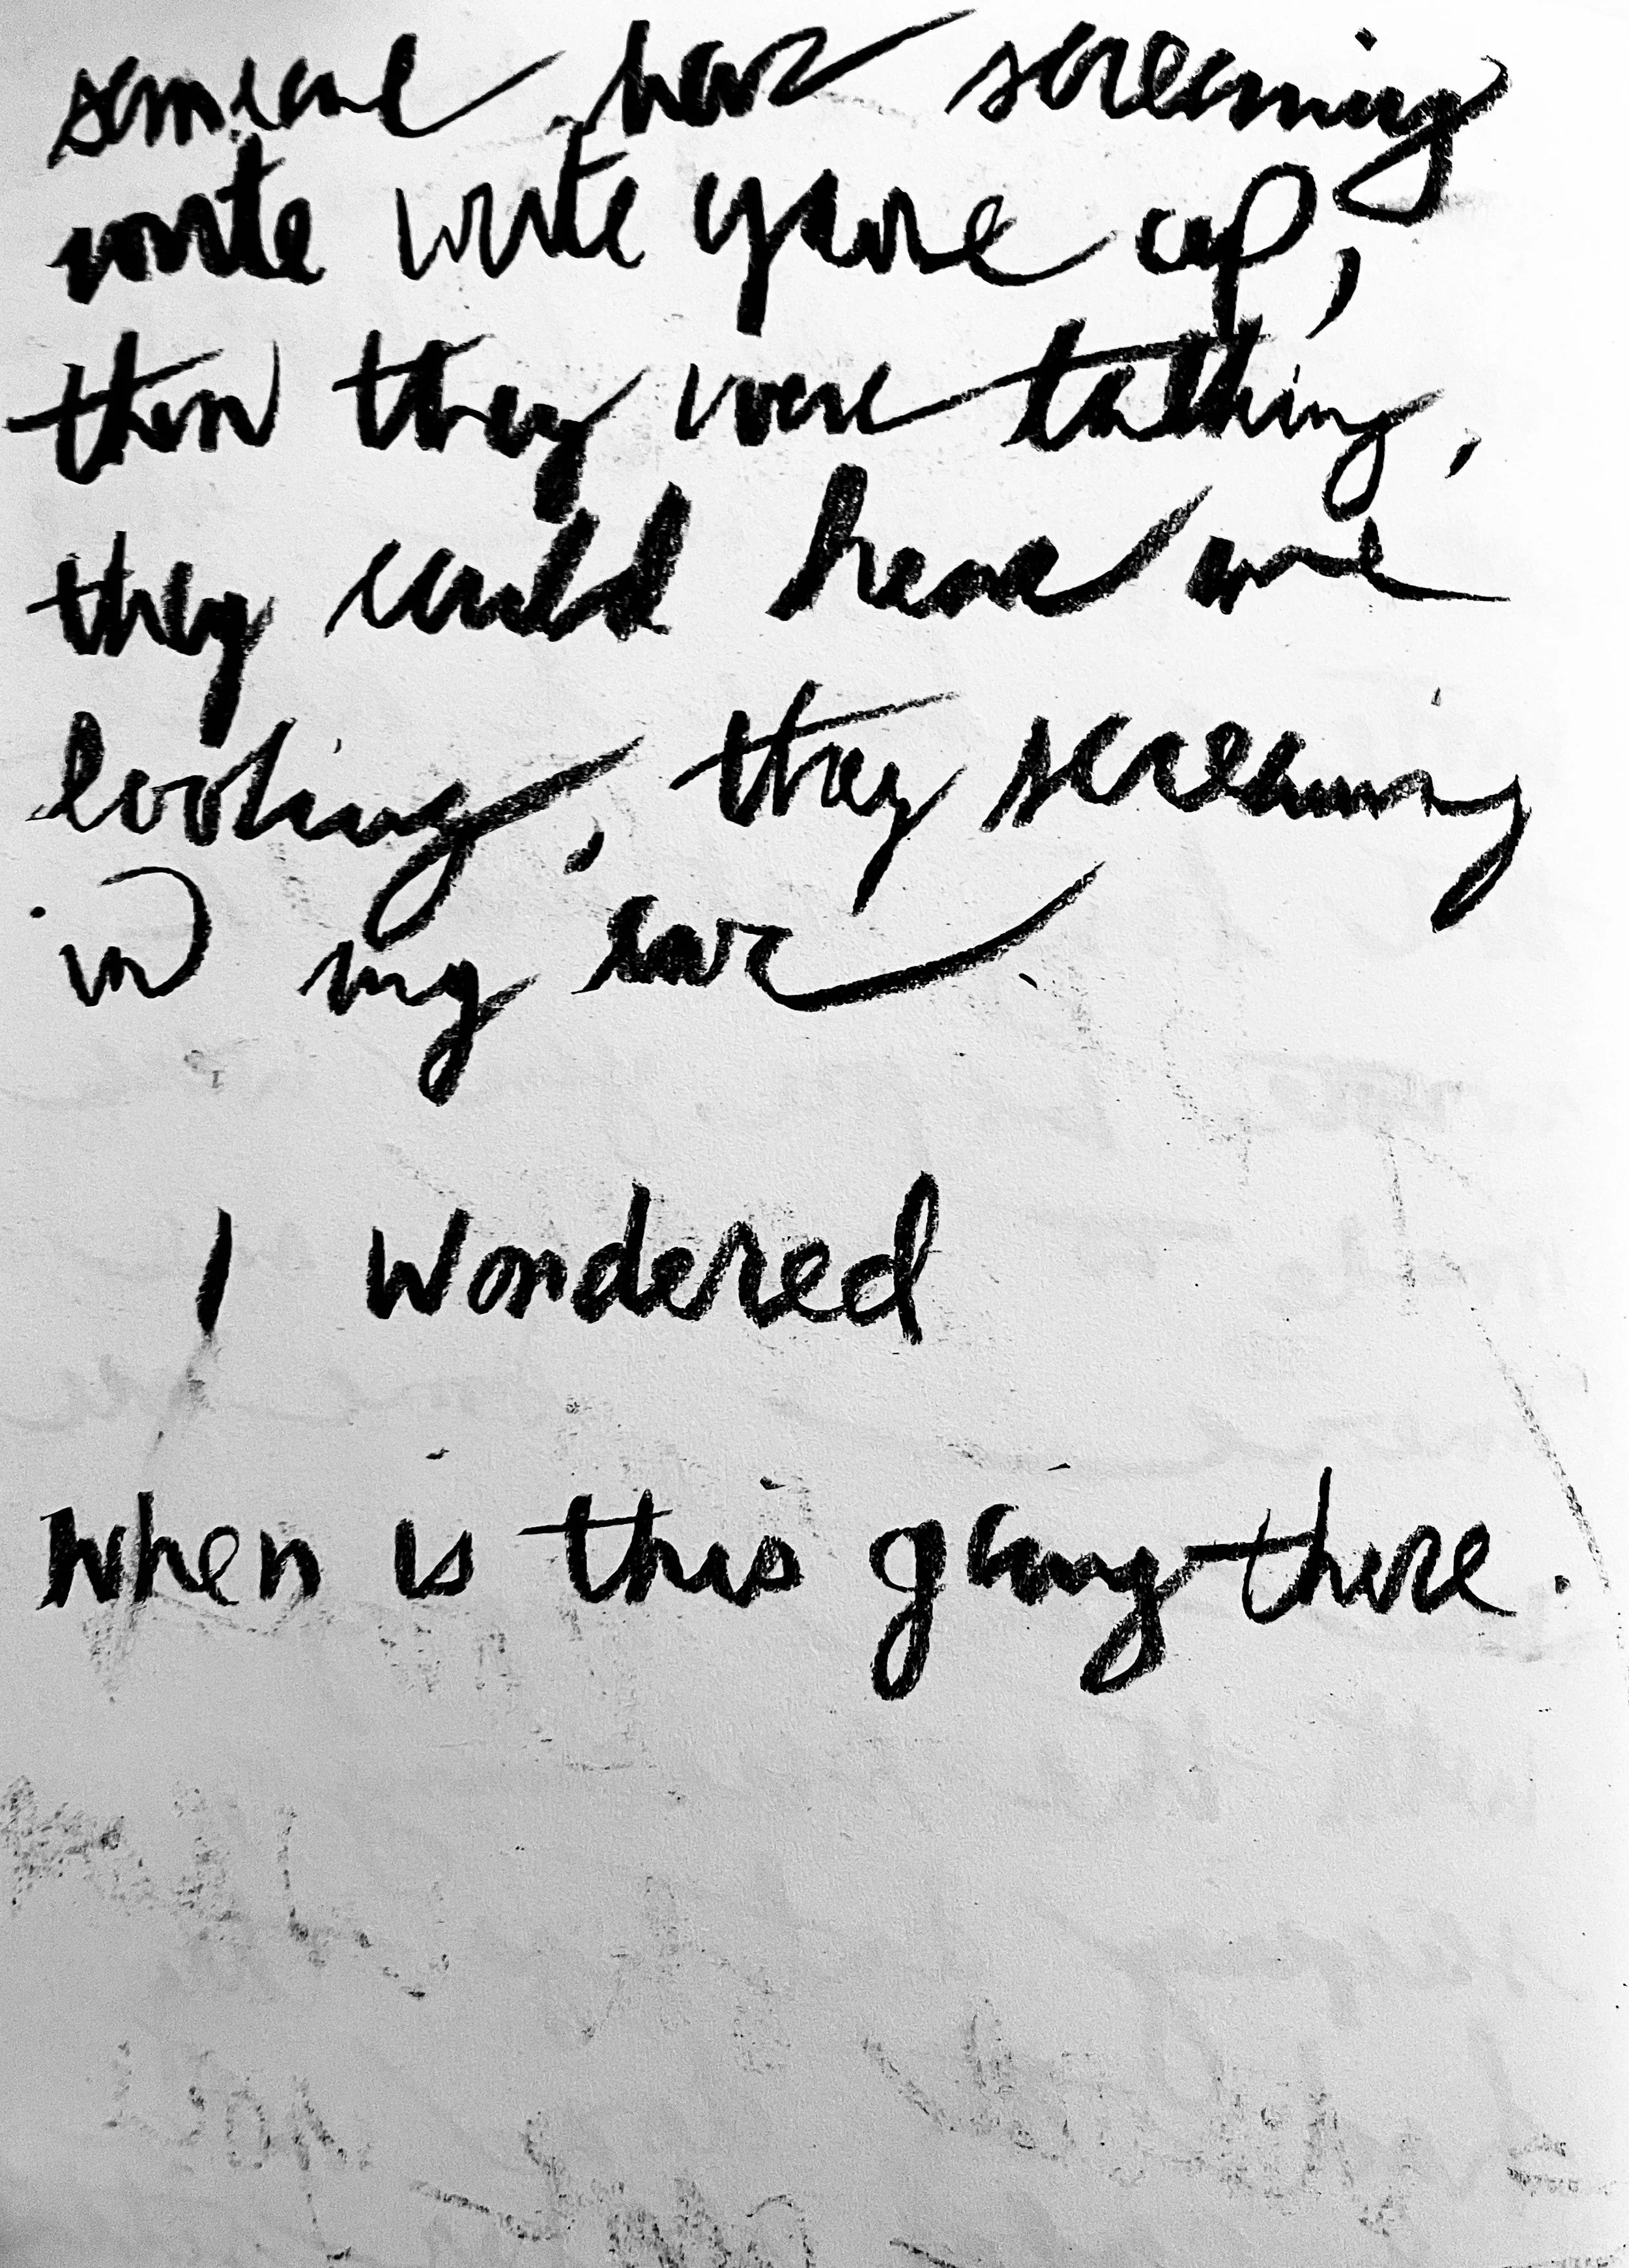 someone has screaming
write write gave up,
then they were talking,
they could have me
looking, they screaming
in my ear.
I wondered
when is this going there.